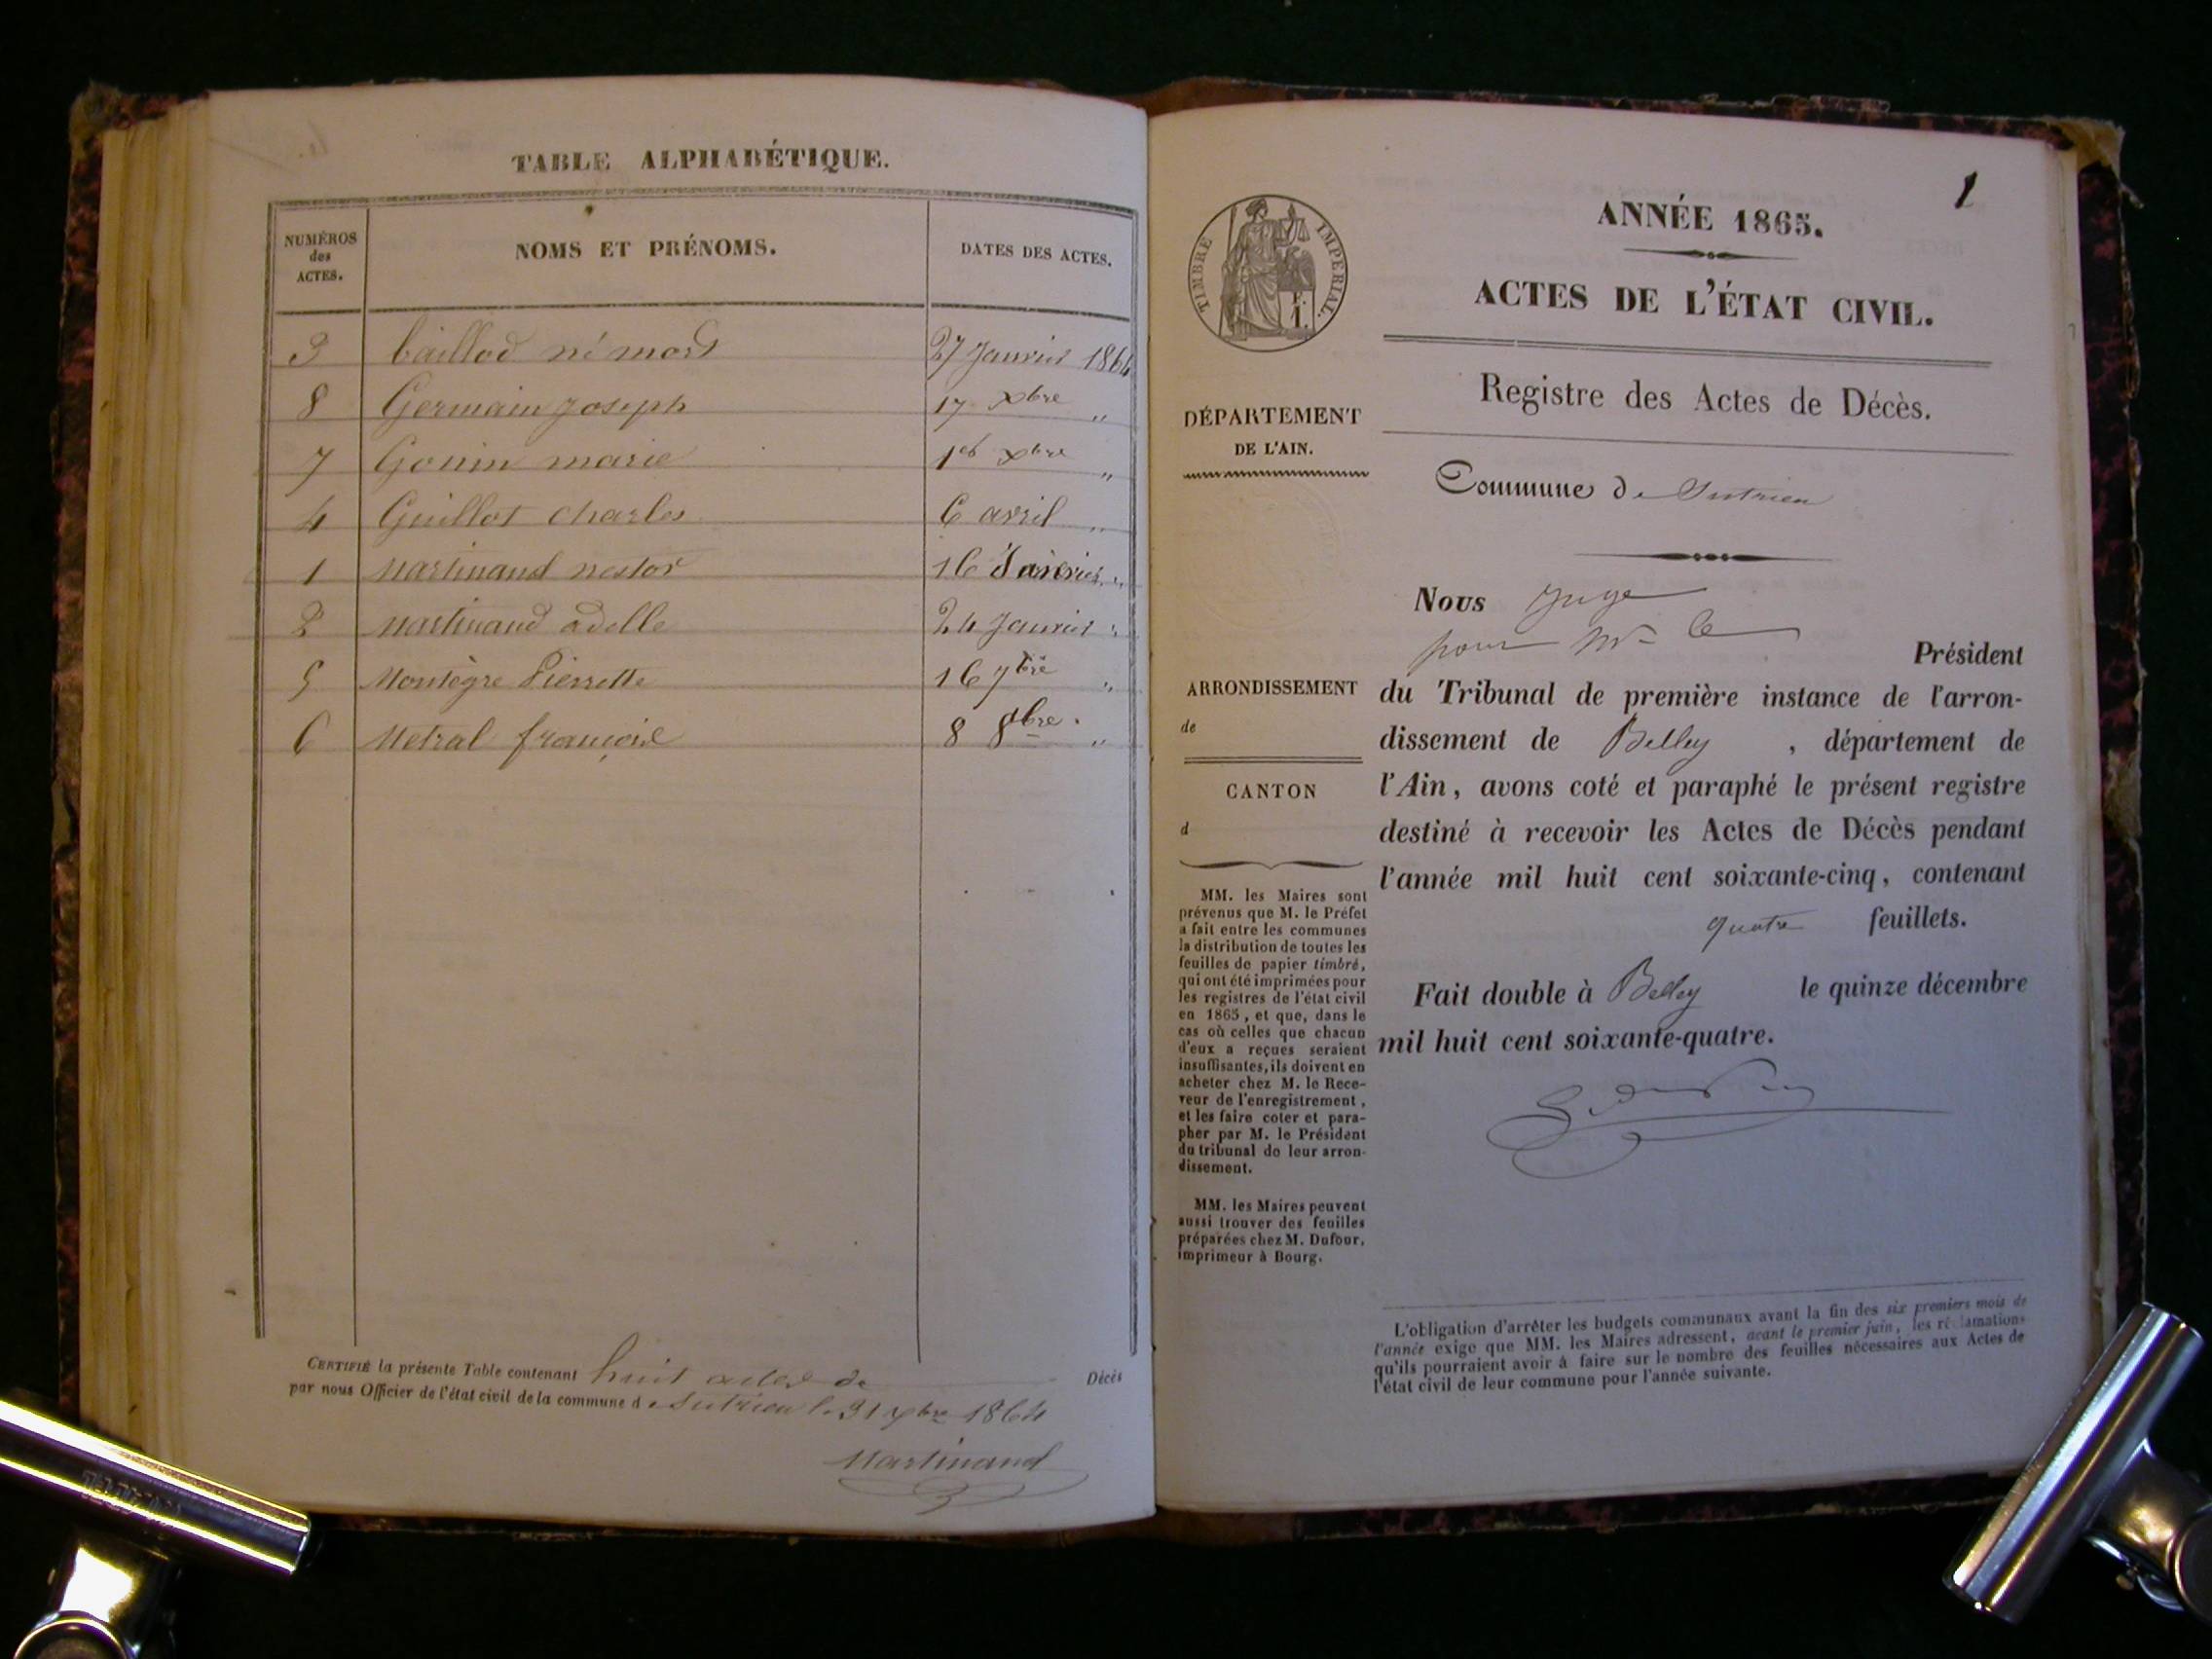 TABLE ALPHABÉTIQUE.
NUMÉROS des ACTES. NOMS ET PRÉNOMS. DATES DES ACTES.
3 baillod né mort 27 Janvier 1864
8 Germain Joseph 17 Xbre "
7 Gonin marie 1er Xbre "
4 Guillot charles 6 avril "
1 Martinand nestor 16 Janvier "
2 Martinand adelle 24 Janvier "
5 Montègre Pierrette 16 7bre "
6 Metral françoise 8 8bre "
CERTIFIÉ la présente Table contenant huit actes de Décès
par nous Officier de l'état civil de la commune de Sutrieu le 31 Xbre 1864
Martinand
1
TIMBRE IMPÉRIAL.
F.
1.
ANNÉE 1865.
ACTES DE L'ÉTAT CIVIL.
Registre des Actes de Décès.
DÉPARTEMENT
DE L'AIN.
Commune de Sutrieu
Nous Juge
pour Mr le
Président
ARRONDISSEMENT
de
CANTON
d
du Tribunal de première instance de l'arron-
dissement de Belley , département de
l'Ain, avons coté et paraphé le présent registre
destiné à recevoir les Actes de Décès pendant
l'année mil huit cent soixante-cinq, contenant
quatre feuillets.
Fait double à Belley le quinze décembre
mil huit cent soixante-quatre.
MM. les Maires sont
prévenus que M. le Préfet
a fait entre les communes
la distribution de toutes les
feuilles de papier timbré,
qui ont été imprimées pour
les registres de l'état civil
en 1865, et que, dans le
cas où celles que chacun
d'eux a reçues seraient
insuffisantes, ils doivent en
acheter chez M. le Rece-
veur de l'enregistrement,
et les faire coter et para-
pher par M. le Président
du tribunal de leur arron-
dissement.
MM. les Maires peuvent
aussi trouver des feuilles
préparées chez M. Dufour,
imprimeur à Bourg.
L'obligation d'arrêter les budgets communaux avant la fin des six premiers mois de
l'année exige que MM. les Maires adressent, avant le premier juin, les réclamations
qu'ils pourraient avoir à faire sur le nombre des feuilles nécessaires aux Actes de
l'état civil de leur commune pour l'année suivante.